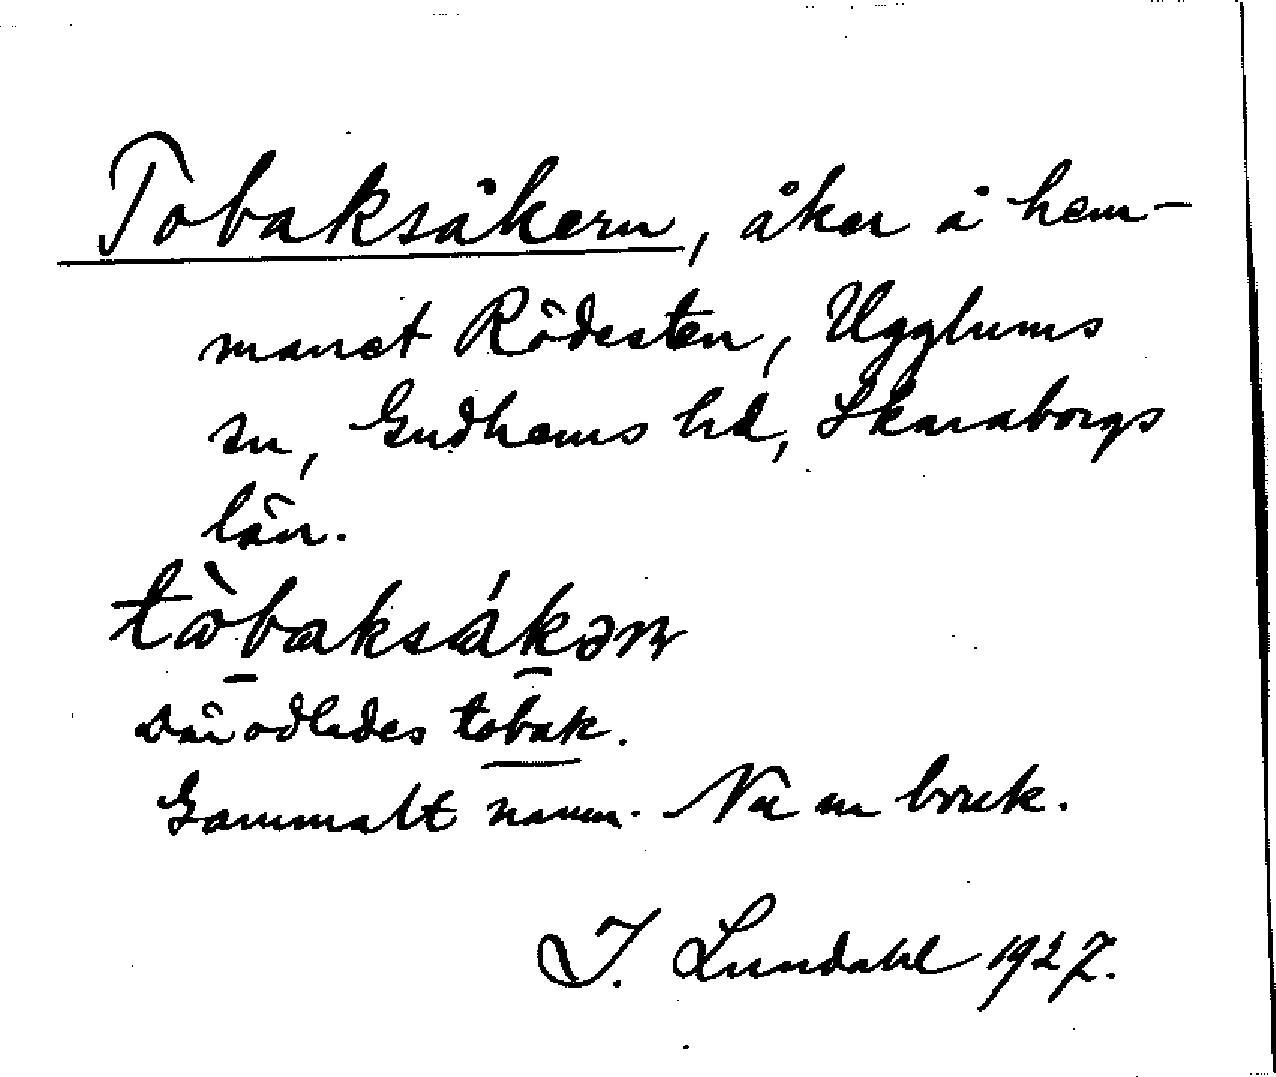 Tobaksåkern, åker å hem-
manet Rödesten, Ugglums
sn, Gudhems hd, Skaraborgs
län.
tòbaksákəɲ
Där odlades tobak.
Gammalt namn. Nu ur bruk.
I. Lundahl 1927.